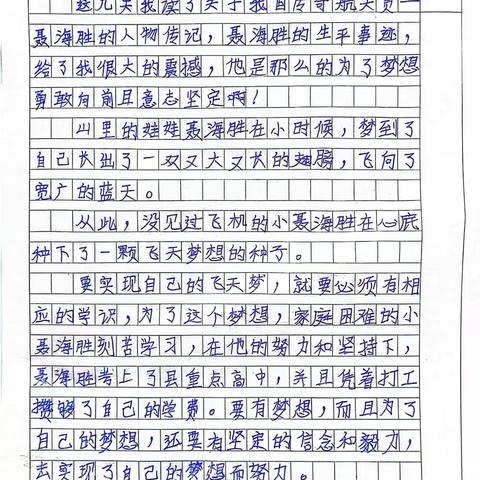 这几天我读了关于我国传奇航天员一
聂海胜的人物传记，聂海胜的生平事迹，
给了我很大的震撼，他是那么的为了梦想
勇敢向前且意志坚定啊！
山里的娃娃聂海胜在小时候，梦到了
自己长出了一双又大又长的翅膀，飞向了
宽广的蓝天。
从此，没见过飞机的小聂海胜在心底
种下了一颗飞天梦想的种子。
要实现自己的飞天梦，就要必须有相
应的学识，为了这个梦想，家庭困难的小
聂海胜刻苦学习，在他的努力和坚持下，
聂海胜考上了县重点高中，并且凭着打工
攒够了自己的学费。要有梦想，而且为了
自己的梦想，还要有坚定的信念和毅力，
去实现了自己的梦想而努力。